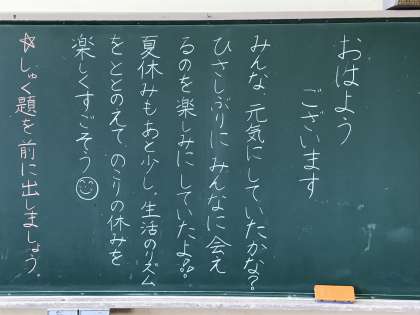 おはよう
ございます
みんな、元気にしていたかな?
ひさしぶりにみんなに会え
るのを楽しみにしていたよ!!
夏休みもあと少し。生活のリズム
をととのえて、のこりの休みを
楽しくすごそう
☆しゅく題を前に出しましょう。